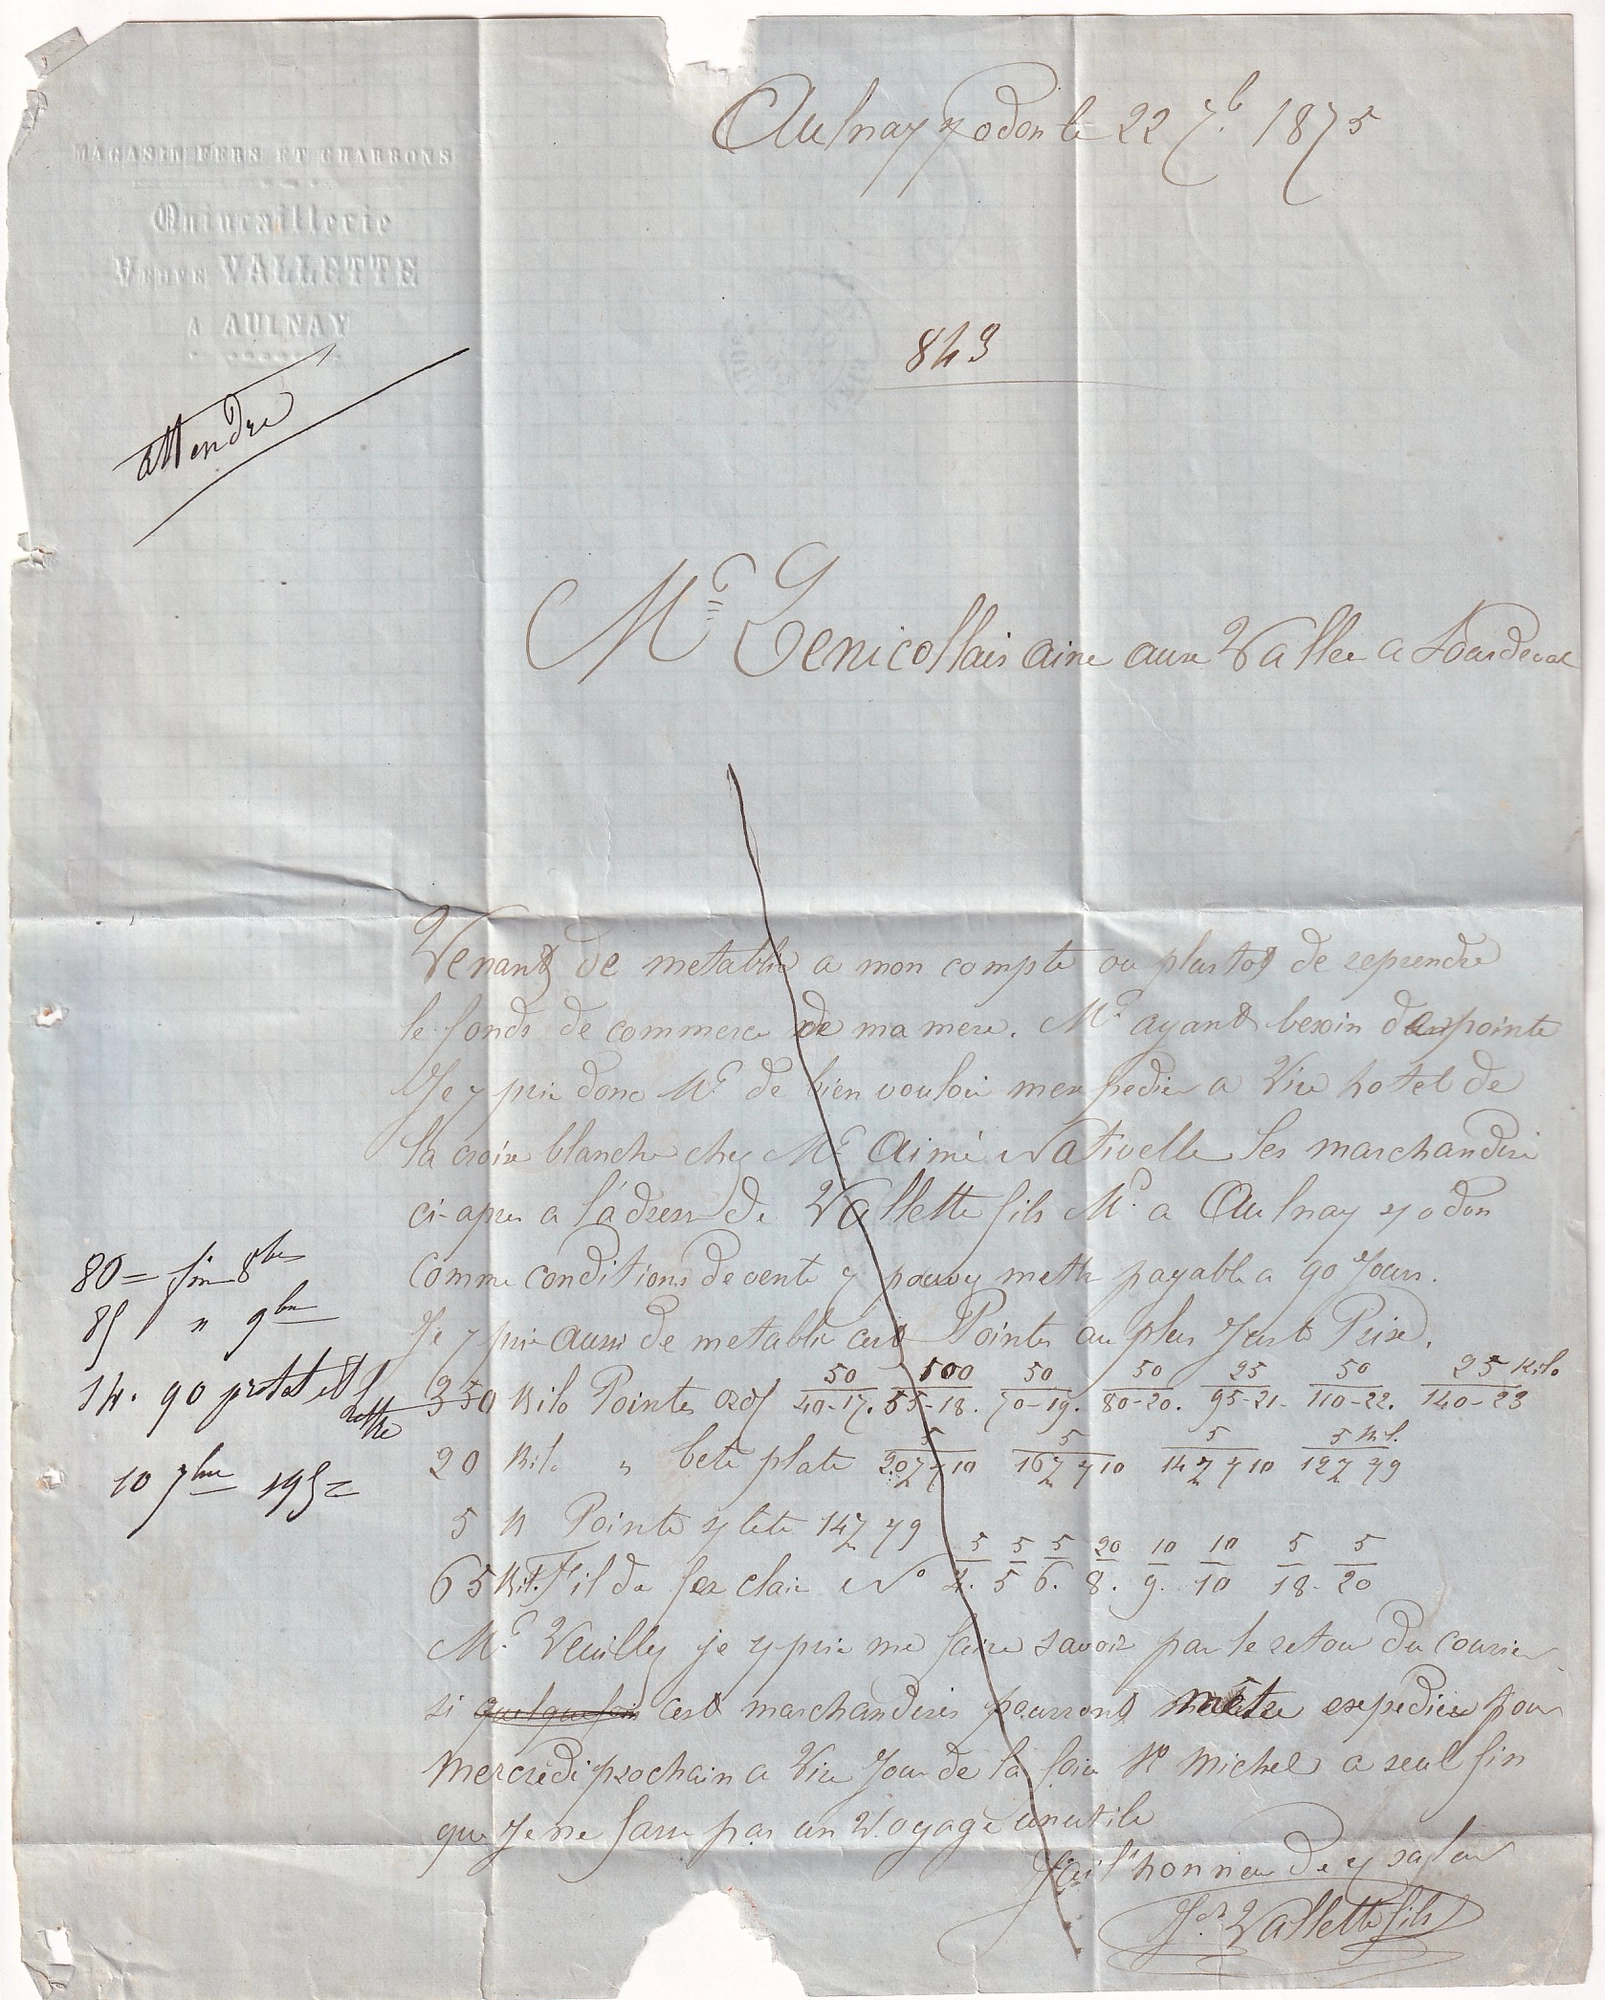 MAGASIN FERS ET CHARBONS
Quincaillerie
VEUVE VALLETTE
A AULNAY
Aulnay s/odon le 22 7b. 1875
843
attendre
Mr. Genicollais aine aux Vallee a Sourdeval
Venant de metablir a mon compte ou plustot de reprendre
le fonds de commerce de ma mere. Mr. ayant besoin de pointe
Je v prie donc Mr. de bien vouloir mexpedier a Vire hotel de
la croix blanche chez Mr. Aimé Nativelle les marchandise
ci-apres a l'adresse de Vallette fils Md. a Aulnay s/odon
Comme conditions de vente v pouvez mettre payable a 90 Jours.
Je v prie aussi de metablir cest Pointes au plus Juste Prix.
350 Kilo Pointes ord 50/40-17. 100/55-18. 50/70-19. 50/80-20. 25/95-21. 50/110-22. 25 Kilo/140-23
20 Kilo " tete plate 5/207 y 10 5/167 y 10 5/147 y 10 5 Kil./127 y 9
5 K Pointe s/tete 147 y 9
65 Kil. Fil de fer clair No 5/4. 5/5 5/6. 20/8. 10/9. 10/10 5/18. 5/20
Mr. Veuillez je v prie me faire savoir par le retour du courier
si quelquefois cest marchandises pourront metre expedier pour
mercredi prochain a Vire Jour de la foire St Michel a seul fin
que Je ne fasse pas un Voyage inutile
J'ai l'honneur de v saluer
Vallette fils
80 = fin 8bre
85 " 9bre
14. 90
10 7bre 195